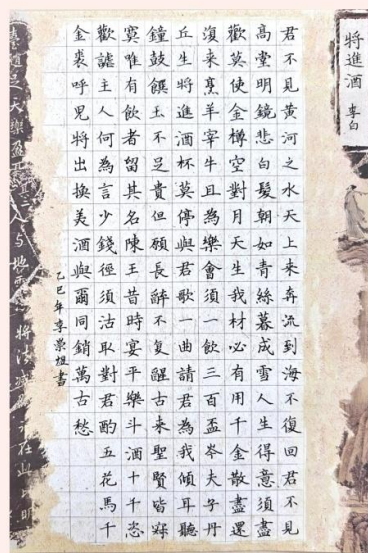 將進酒
李白
君不見黃河之水天上来奔流到海不復回君不見
高堂明鏡悲白髮朝如青絲暮成雪人生得意須盡
歡莫使金樽空對月天生我材必有用千金散盡還
復来烹羊宰牛且為樂會須一飲三百盃岑夫子丹
丘生將進酒杯莫停與君歌一曲請君為我傾耳聽
鐘鼓饌玉不足貴但願長醉不复醒古来聖賢皆寂
寞唯有飲者留其名陳王昔時宴平樂斗酒十千恣
歡謔主人何為言少錢徑須沽取對君酌五花馬千
金裘呼兒將出換美酒與爾同銷萬古愁
乙巳年李崇書